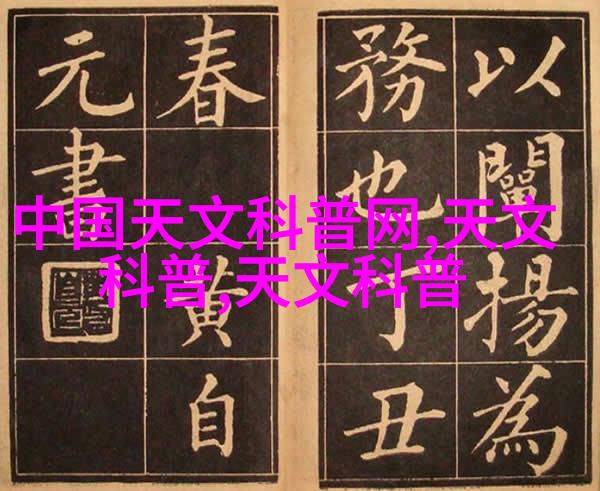 中国天文科普网,天文
科普,天文科普
以闡揚為
務也丁丑
春黄自
元書